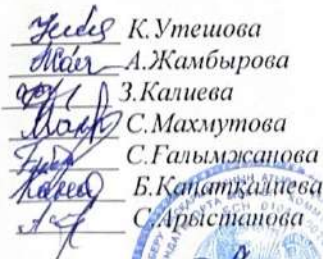 К.Утешова
А.Жамбырова
З.Калиева
С.Махмутова
С.Ғалымжанова
Б.Қапатқалпева
С.Арыстанова